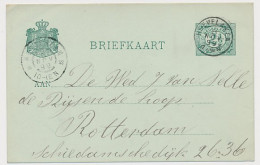 BRIEFKAART
AAN De Wed J. van Nelle
de Rijzende hoop
Rotterdam
Schiedamschedijk 26.36